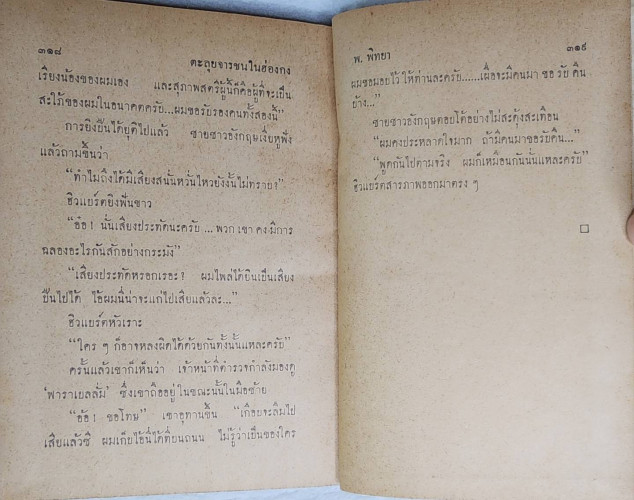 ๓๑๘
ตะลุยจารชนในฮ่องกง
เรียงน้องของผมเอง และสุภาพสตรีผู้นี้ก็คือผู้ที่จะเป็น
สะใภ้ของผมในอนาคตครับ...ผมขอรับรองคนทั้งสองนี้”
การยิงปืนได้ยุติไปแล้ว ชายชาวอังกฤษเงี่ยหูฟัง
แล้วถามขึ้นว่า
“ทำไมถึงได้มีเสียงสนั่นหวั่นไหวยังงั้นไม่ทราบ”
ฮิวแยร์ตยิงฟันขาว
“อ๋อ! นั่นเสียงประทัดนะครับ...พวกเขาคงมีการ
ฉลองอะไรกันสักอย่างกระมัง”
“เสียงประทัดหรอกเรอะ? ผมไพล่ได้ยินเป็นเสียง
ปืนไปได้ ไอ้ผมนี่น่าจะแก่ไปเสียแล้วละ...”
ฮิวแยร์ตหัวเราะ
“ใคร ๆ ก็อาจหลงผิดได้ด้วยกันทั้งนั้นแหละครับ”
ครั้นแล้วเขาก็เห็นว่า เจ้าหน้าที่ตำรวจกำลังมองดู
‘พาราเบลลั่ม’ ซึ่งเขาถืออยู่ในขณะนั้นในมือซ้าย
“อ้อ! ขอโทษ” เขาอุทานขึ้น “เกือบจะลืมไป
เสียแล้วซี ผมเก็บไอ้นี่ได้ที่บนถนน ไม่รู้ว่าเป็นของใคร
พ. พิทยา
๓๑๙
ผมขอมอบไว้ให้ท่านละครับ......เผื่อจะมีคนมาขอรับคืน
บ้าง...”
ชายชาวอังกฤษตอบโต้อย่างไม่สะดุ้งสะเทือน
“ผมคงประหลาดใจมาก ถ้ามีคนมาขอรับคืน...”
“พูดกันไปตามจริง ผมก็เหมือนกันนั่นแหละครับ”
ฮิวแยร์ตสารภาพออกมาตรง ๆ